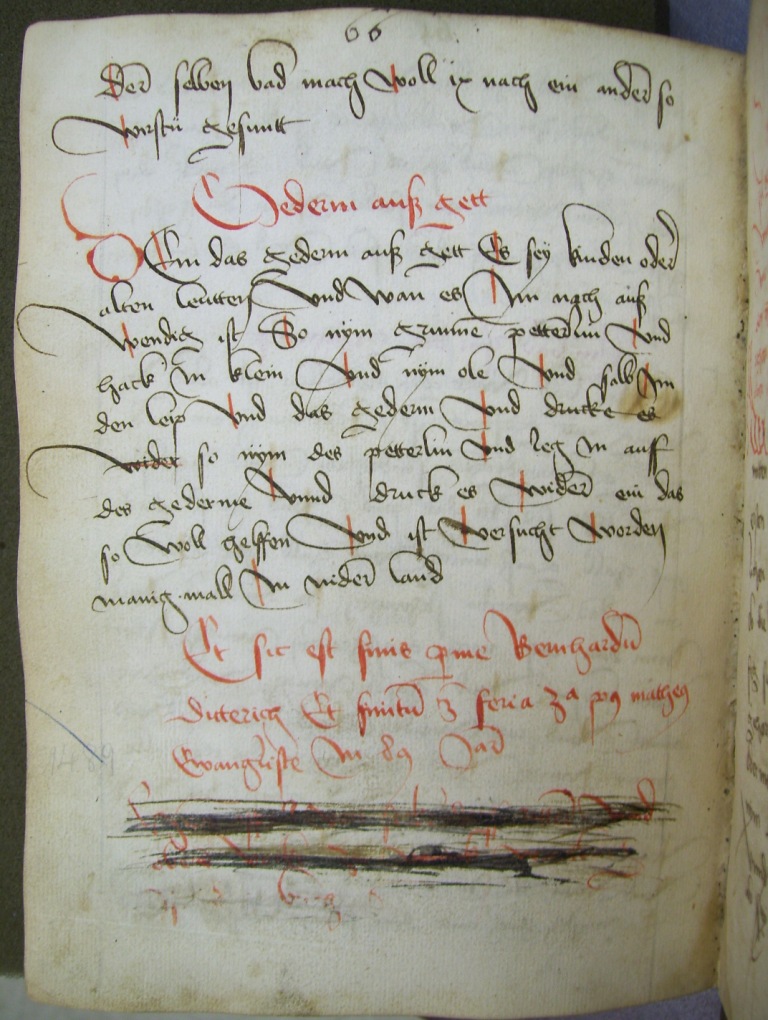 66
Der selben bad mach woll ix nach ein ander so
wirstu gesuntt
Gederm auß gett
Dem das gederm auß gett Es sey kinden oder
alten leutten Vnd wan es Im nach auß
wendig ist So nym grunne petterlin Vnd
hack In klein Vnd nym ole Vnd salb Im
den leip Vnd das gederm Vnd drucke es
wider so nym des petterlin Vnd leg In auff
des gederme Vnnd druck es wider ein das
so woll helffen Vnd ist versucht worden
manig mall In nider land
Et sic est finis per me Bernhardu
Ditterich Et finitu 3 feria 3a post matheus
Ewangeliste In 89 Jar